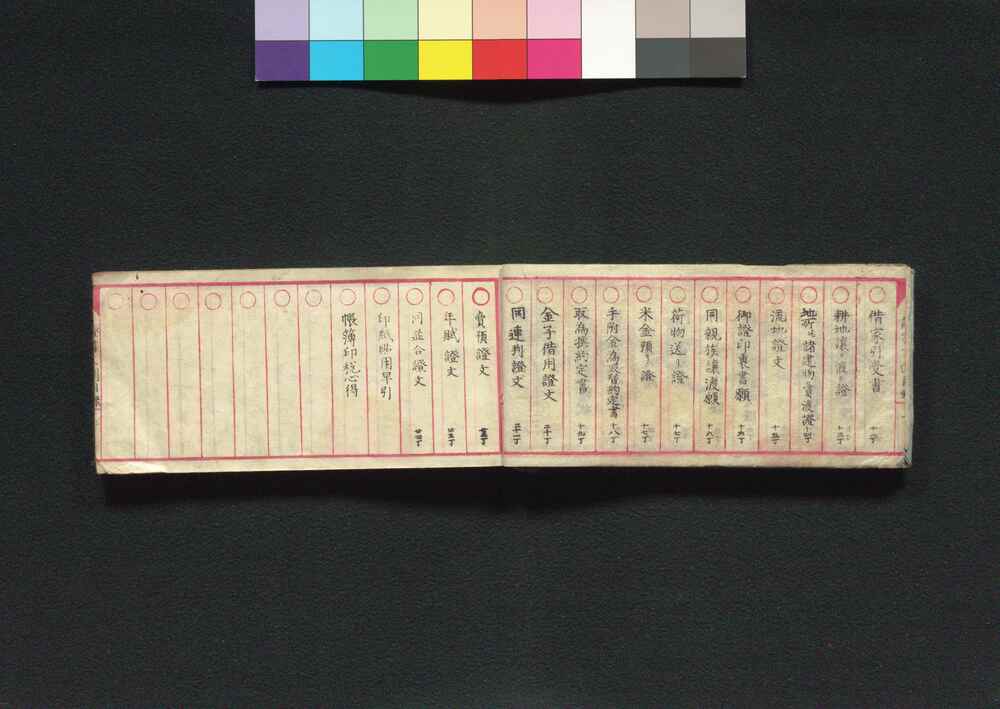 借家引受書 十一丁
耕地讓り渡し證 十二丁
地所并諸建物賣渡證 十四丁
流地證文 十五丁
御證印裏書願 十六丁
同親族讓渡願 十八丁
荷物送り證 十七丁
米金預り證 十七丁
手附金為及管約定書 十八丁
取為換約定書 十九丁
金子借用證文 二十丁
同連判證文 二十一丁
賣預證文
年賦證文 廿三丁
同並合證文 廿四丁
印紙貼用早引
帳簿印税心得